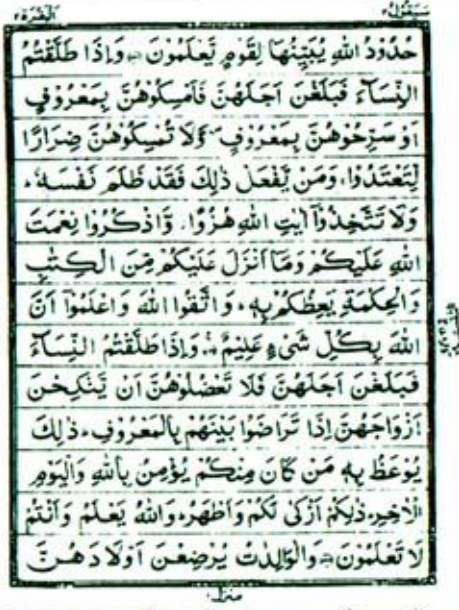 سيقول٢ البقرة٢
حُدُوْدُ اللّٰهِ يُبَيِّنُهَا لِقَوْمٍ يَّعْلَمُوْنَ وَاِذَا طَلَّقْتُمُ
النِّسَآءَ فَبَلَغْنَ اَجَلَهُنَّ فَاَمْسِكُوْهُنَّ بِمَعْرُوْفٍ
اَوْ سَرِّحُوْهُنَّ بِمَعْرُوْفٍ وَّلَا تُمْسِكُوْهُنَّ ضِرَارًا
لِّتَعْتَدُوْا وَمَنْ يَّفْعَلْ ذٰلِكَ فَقَدْ ظَلَمَ نَفْسَهٗ
وَلَا تَتَّخِذُوْٓا اٰيٰتِ اللّٰهِ هُزُوًا وَّاذْكُرُوْا نِعْمَتَ
اللّٰهِ عَلَيْكُمْ وَمَآ اَنْزَلَ عَلَيْكُمْ مِّنَ الْكِتٰبِ
وَالْحِكْمَةِ يَعِظُكُمْ بِهٖ وَاتَّقُوا اللّٰهَ وَاعْلَمُوْٓا اَنَّ
اللّٰهَ بِكُلِّ شَيْءٍ عَلِيْمٌ وَاِذَا طَلَّقْتُمُ النِّسَآءَ
فَبَلَغْنَ اَجَلَهُنَّ فَلَا تَعْضُلُوْهُنَّ اَنْ يَّنْكِحْنَ
اَزْوَاجَهُنَّ اِذَا تَرَاضَوْا بَيْنَهُمْ بِالْمَعْرُوْفِ ذٰلِكَ
يُوْعَظُ بِهٖ مَنْ كَانَ مِنْكُمْ يُؤْمِنُ بِاللّٰهِ وَالْيَوْمِ
الْاٰخِرِ ذٰلِكُمْ اَزْكٰى لَكُمْ وَاَطْهَرُ وَاللّٰهُ يَعْلَمُ وَاَنْتُمْ
لَا تَعْلَمُوْنَ وَالْوَالِدٰتُ يُرْضِعْنَ اَوْلَادَهُنَّ
منزل